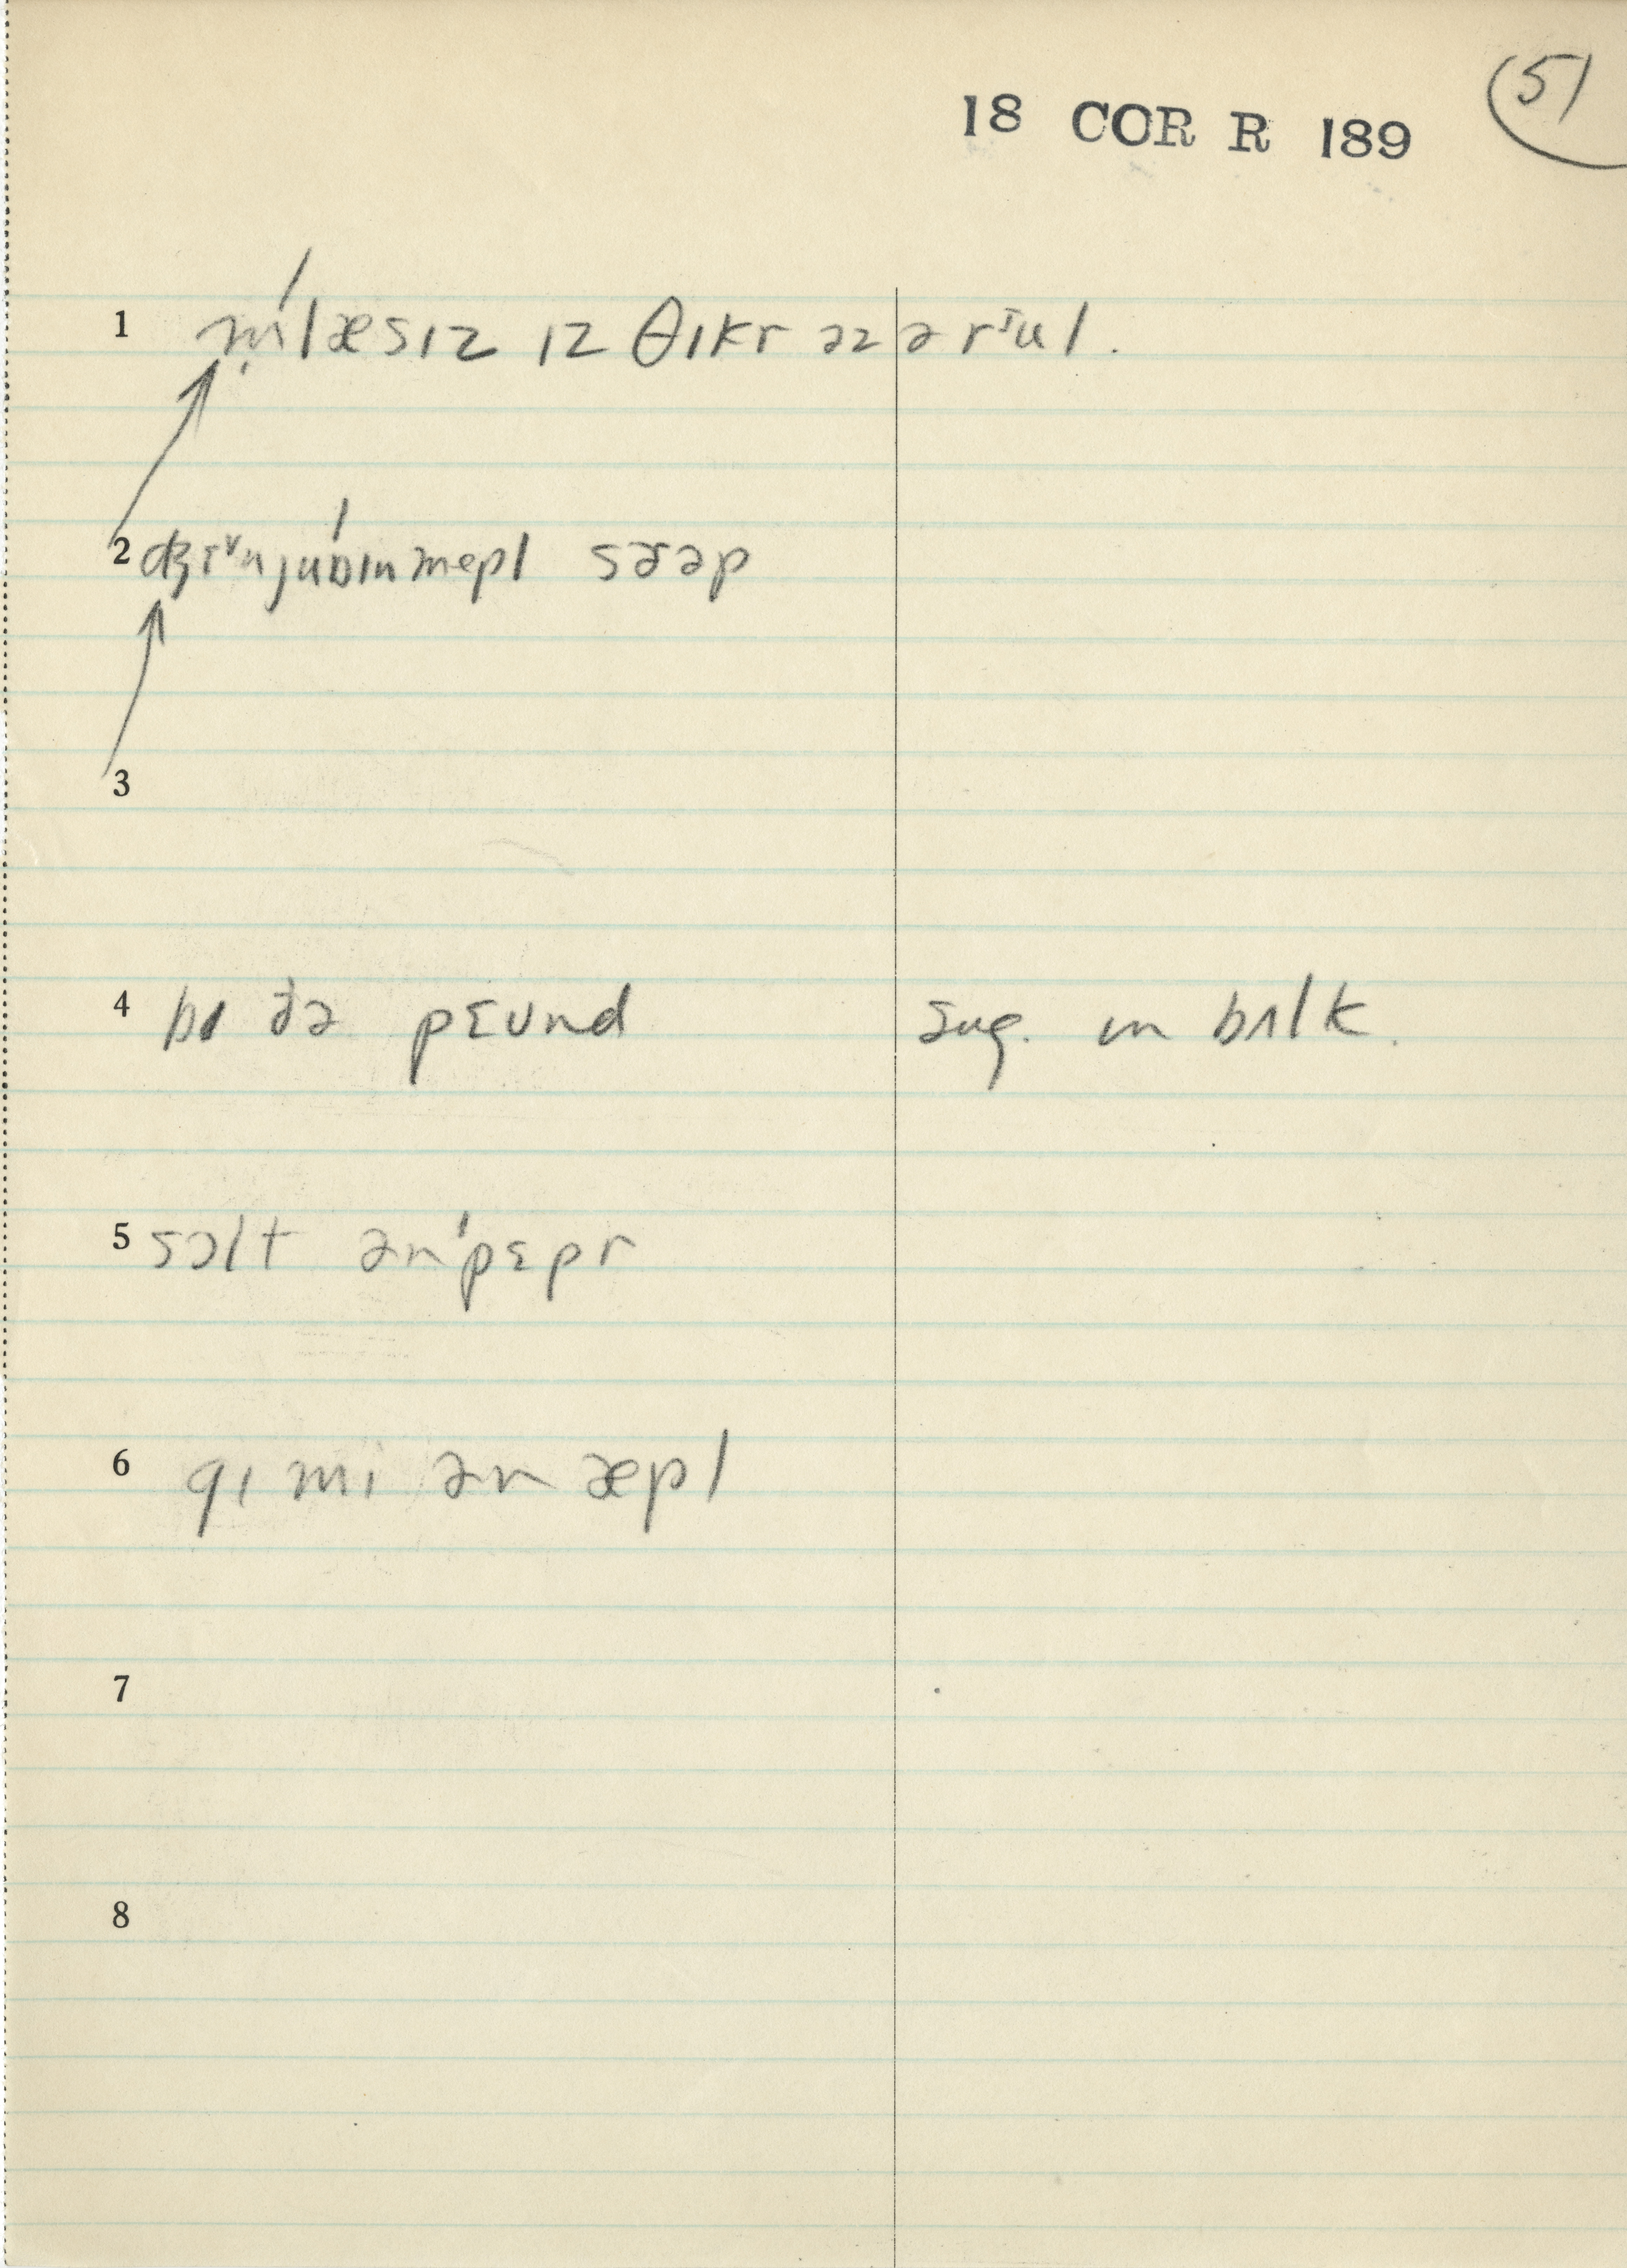 51
18 COR R 189
1 mlæsɪz ɪz θɪkr əz ə rᶦul.
2 ʤɪᵛnjuɪnmepl səəp
3
4 bɪ ðə pɛʊnd sug. ɪn bʌlk.
5 sɔlt ən ˈpɛpr
6 gɪ mi ən æpl
7
8